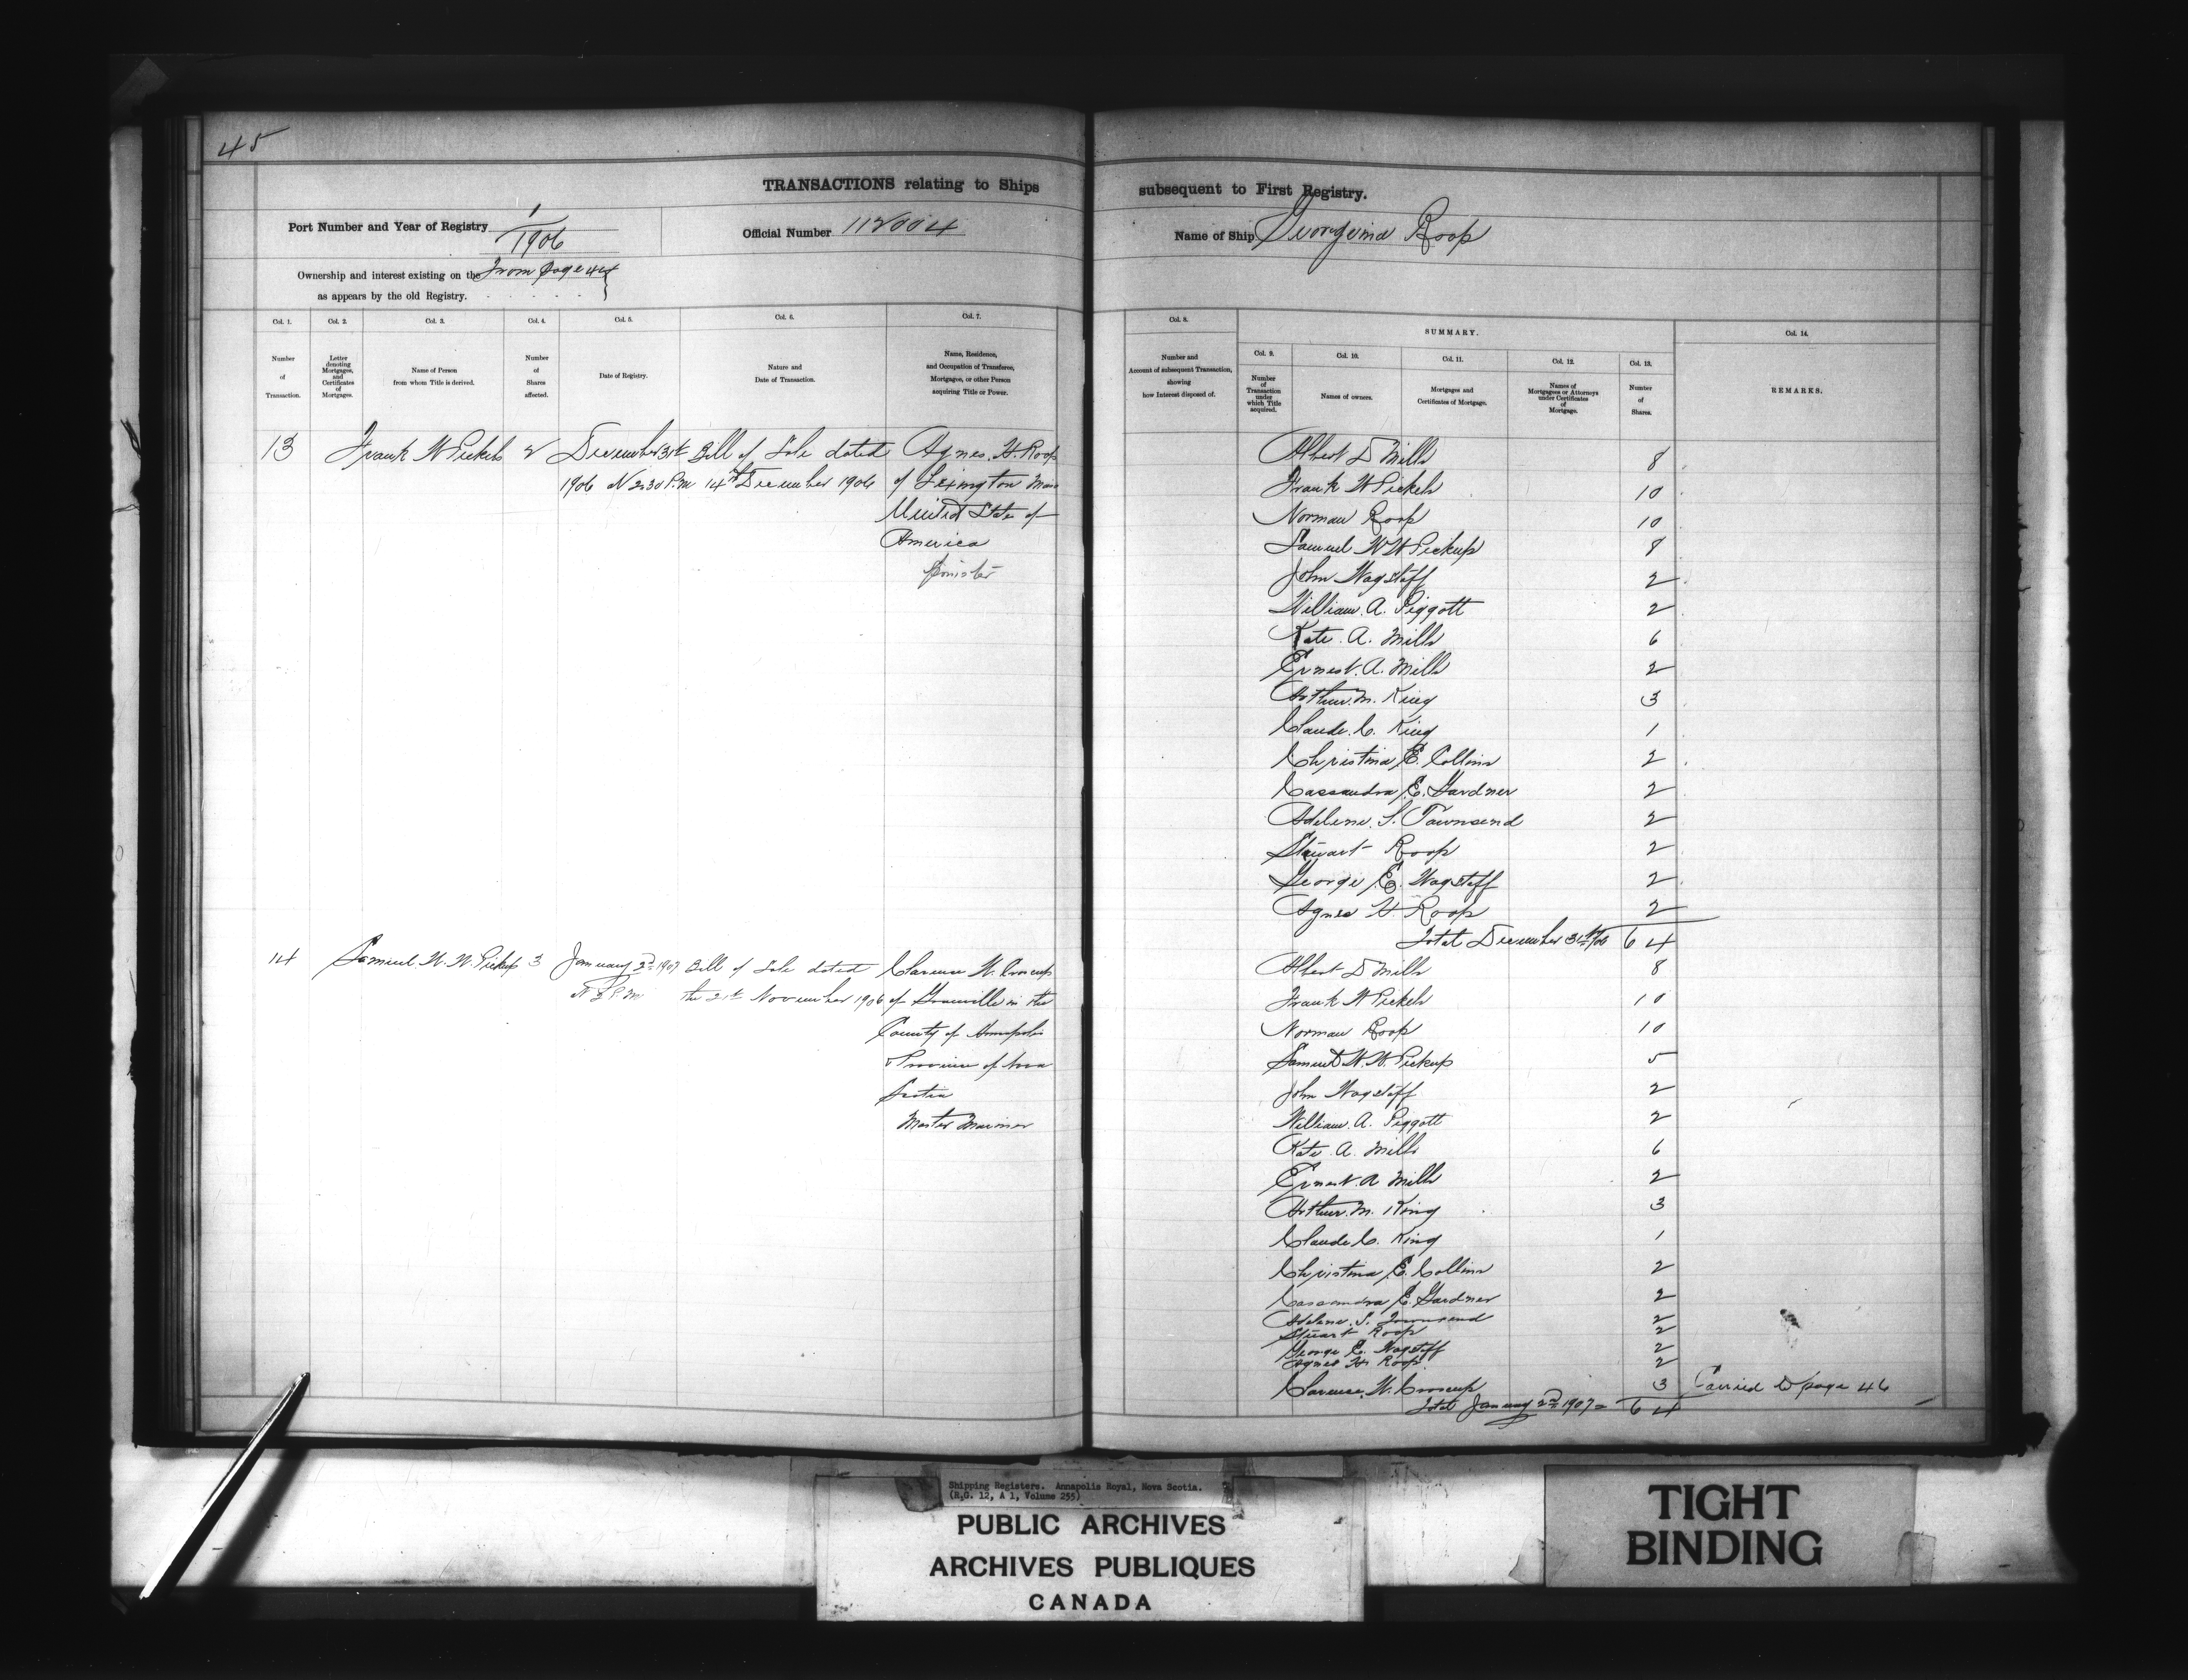 45
TRANSACTIONS relating to Ships subsequent to First Registry.
Port Number and Year of Registry 1/1906
Official Number 112004
Name of Ship Georgina Roop
Ownership and interest existing on the From page 44
as appears by the old Registry.
Col. 1. Number of Transaction.
Col. 2. Letter denoting Mortgages, and Certificates of Mortgages.
Col. 3. Name of Person from whom Title is derived.
Col. 4. Number of Shares affected.
Col. 5. Date of Registry.
Col. 6. Nature and Date of Transaction.
Col. 7. Name, Residence, and Occupation of Transferee, Mortgagee, or other Person acquiring Title or Power.
Col. 8. Number and Account of subsequent Transaction, showing how Interest disposed of.
SUMMARY.
Col. 9. Number of Transaction under which Title acquired.
Col. 10. Names of owners.
Col. 11. Mortgages and Certificates of Mortgage.
Col. 12. Names of Mortgagees or Attorneys under Certificates of Mortgage.
Col. 13. Number of Shares.
Col. 14. REMARKS.
13 Frank W Pickels 2 December 31st Bill of Sale dated Agnes. H. Roop
1906 At 2.30 P.M 14th December 1906 of Lexington Mass
United State of
America
Spinster
Albert D Mills 8
Frank W Pickels 10
Norman Roop 10
Samuel W W Pickup 8
John Wagstaff 2
William. A. Piggott 2
Kate. A. Mills 6
Ernest. A. Mills 2
Arthur. M. King 3
Claude. C. King 1
Christina E. Collins 2
Cassandra E. Gardner 2
Adelene. S. Townsend 2
Stewart Roop 2
George E. Wagstaff 2
Agnes H. Roop 2
Total December 31st 1906 64
14 Samuel. W. W. Pickup 3 January 2nd 1907 Bill of Sale dated Clarence W. Croscup
At P.M. the 21st November 1906 of Granville in the
County of Annapolis
& Province of Nova
Scotia
Master Mariner
Albert D Mills 8
Frank W Pickels 10
Norman Roop 10
Samuel W. W. Pickup 5
John Wagstaff 2
William. A. Piggott 2
Kate. A. Mills 6
Ernest. A Mills 2
Arthur. M. King 3
Claude C. King 1
Christina E. Collins 2
Cassandra E. Gardner 2
Adelene. S. Townsend 2
Stuart Roop 2
George E. Wagstaff 2
Agnes H. Roop. 2
Clarence. W. Croscup 3 Carried to page 46
Total January 2nd 1907 = 64
Shipping Registers. Annapolis Royal, Nova Scotia.
(R.G. 12, A 1, Volume 255)
PUBLIC ARCHIVES
ARCHIVES PUBLIQUES
CANADA
TIGHT
BINDING